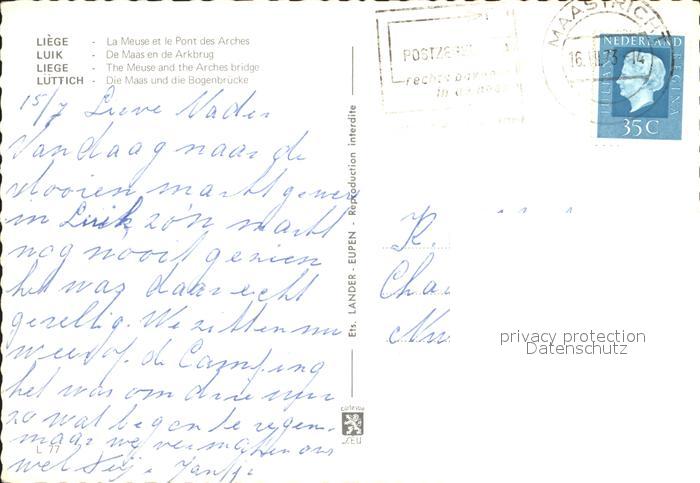 LIÈGE - La Meuse et le Pont des Arches
LUIK - De Maas en de Arkbrug
LIEGE - The Meuse and the Arches bridge
LÜTTICH - Die Maas und die Bogenbrücke
15/7 Lieve Vader
Vandaag naar de
vlooien markt geweest
in Luik zo'n markt
nog nooit gezien
het was daar echt
gezellig. We zitten nu
weer op de Camping
het was om drie uur
zo wat begon te regen-
maar we vermaken ons
wel
L 77
Ets. LANDER - EUPEN - Reproduction interdite
MAASTRICHT
16.VII.73 - 14
POSTZE
rechts boven
in
NEDERLAND
JULIANA REGINA
35 C
K.
Cha
Nu
privacy protection
Datenschutz